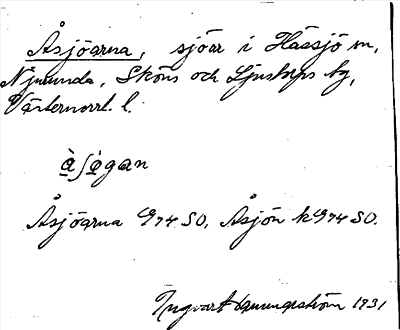 Åsjöarna, sjöar i Hässjö sn,
Njurunda, Sköns och Ljustorps tg,
Västernorrl. l.
Åsjöarna G74 SO, Åsjön k G74 SO.
Ingvart 1931